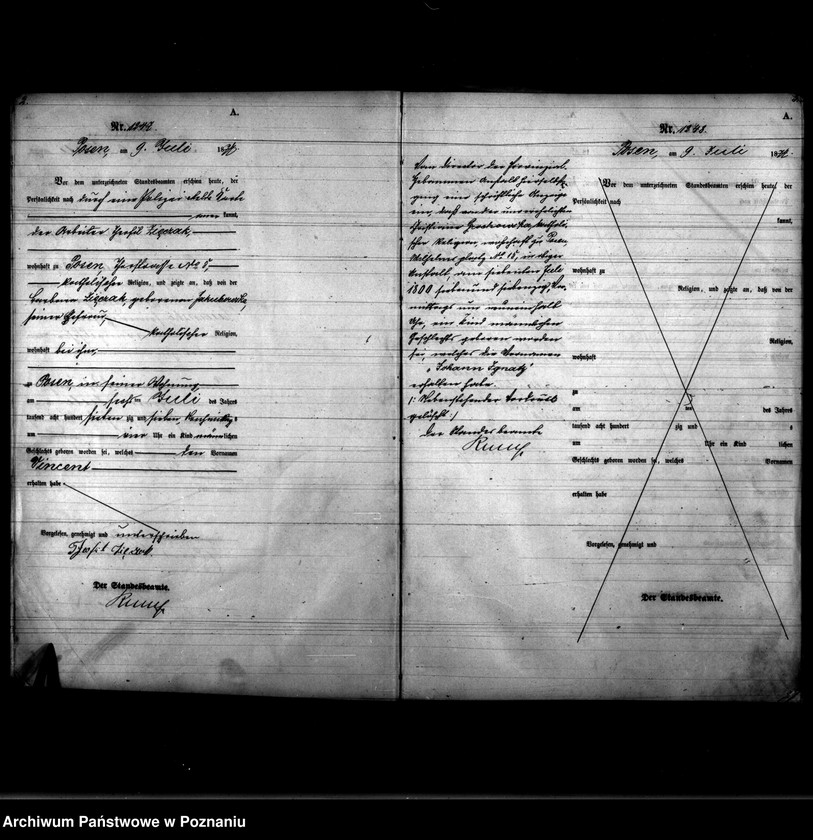 A.
Nr. 1847.
Posen, am 9. Juli 1877.
Vor dem unterzeichneten Standesbeamten erschien heute, der
Persönlichkeit nach durch eine Polizei-Melde Karte
kannt,
der Arbeiter
wohnhaft zu Posen
katholischer Religion, und zeigte an, daß von der
Barbara geborenen
seiner Ehefrau,
katholischer Religion,
wohnhaft bei ihm,
zu Posen in seiner Wohnung
am Juli des Jahres
tausend acht hundert siebenzig und sieben, Nachmittags
um vier Uhr ein Kind männlichen
Geschlechts geboren worden sei, welches den Vornamen
Vincent
erhalten habe
Vorgelesen, genehmigt und unterschrieben
Der Standesbeamte.
A.
Nr. 1848.
Posen, am 9. Juli 1877.
Vom Director der Provinzial-
Hebammen Anstalt hierselbst
ging eine schriftliche Anzeige
ein, daß von der unverehelichten
katholi-
scher Religion, wohnhaft zu Posen,
Wilhelmsplatz No 18, in obiger
Anstalt, am siebenten Juli
1800 siebenundsiebenzig, Vor-
mittags um
Uhr, ein Kind männlichen
Geschlechts geboren worden
sei, welches die Vornamen
„Johann Ignatz“
erhalten habe.
/: Nebenstehender Vordruck
gelöscht :/
Der Standesbeamte
Vor dem unterzeichneten Standesbeamten erschien heute, der
Persönlichkeit nach
kannt,
wohnhaft zu
Religion, und zeigte an, daß von der
Religion,
wohnhaft
zu
am ten des Jahres
tausend acht hundert zig und
um Uhr ein Kind lichen
Geschlechts geboren worden sei, welches Vornamen
erhalten habe
Vorgelesen, genehmigt und
Der Standesbeamte.
Archiwum Państwowe w Poznaniu